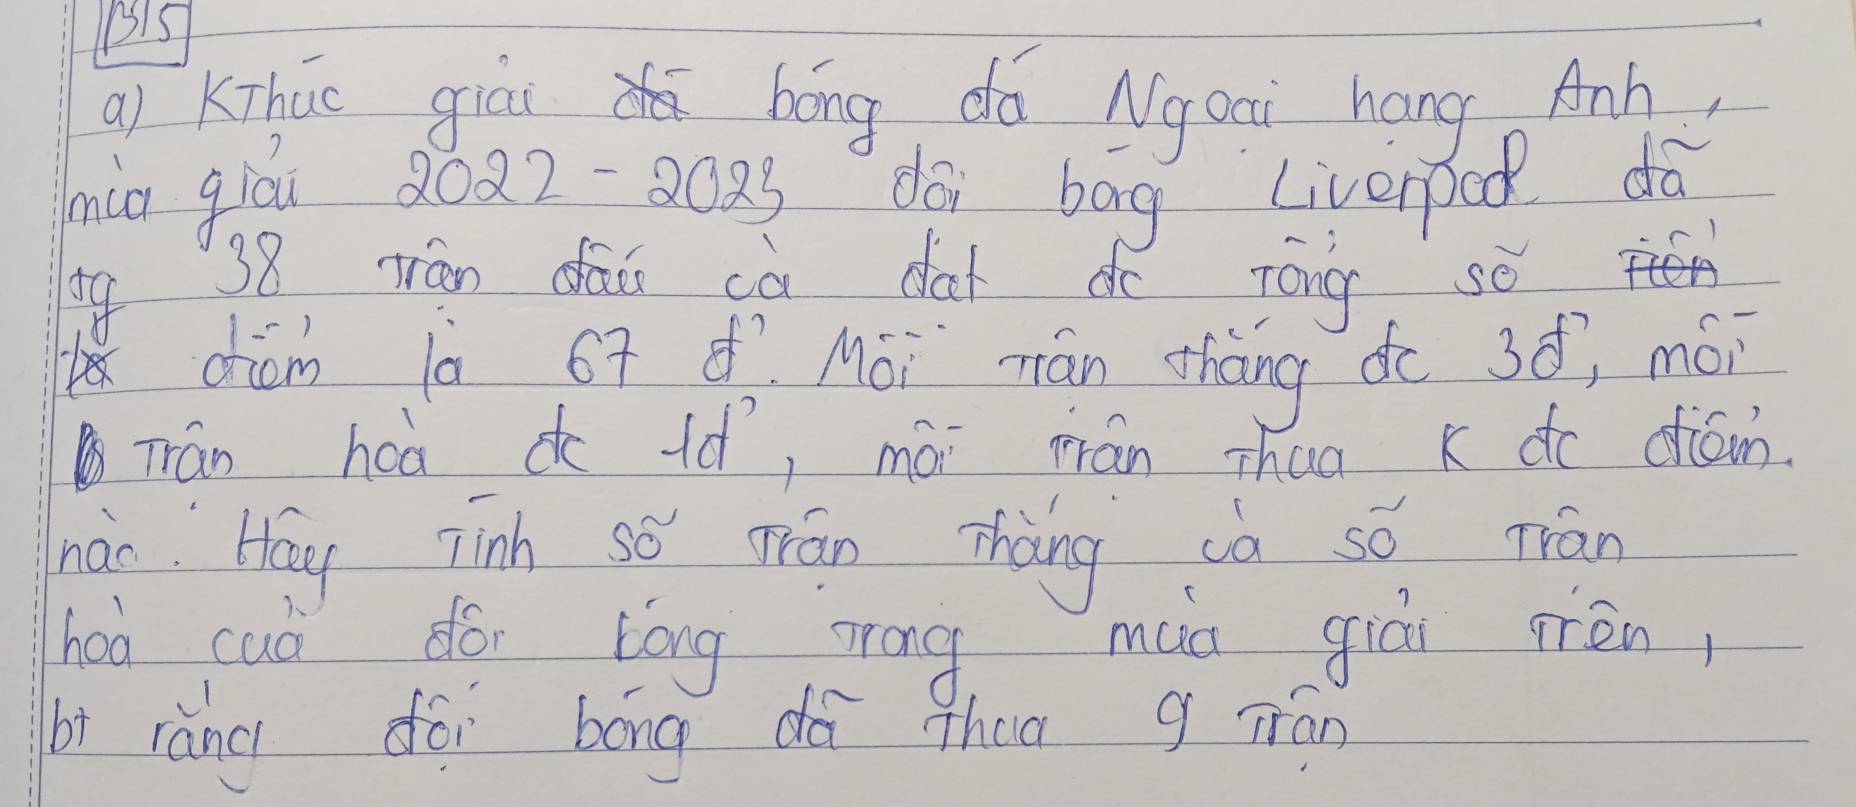 B15
a) KThúc giải bóng đá Ngoại hạng Anh,
mùa giải 2022 - 2023 đội bóng Liverpool đã
tg 38 trận đấu và đạt đc tổng số
điểm là 67 đ'. Mỗi trận thắng đc 3đ', mỗi
trận hoà đc 1đ', mỗi trận thua K đc điểm
nào. Hãy tính số trận thắng và số trận
hoà của đội bóng trong mùa giải trên,
bt rằng đội bóng đã thua 9 trận